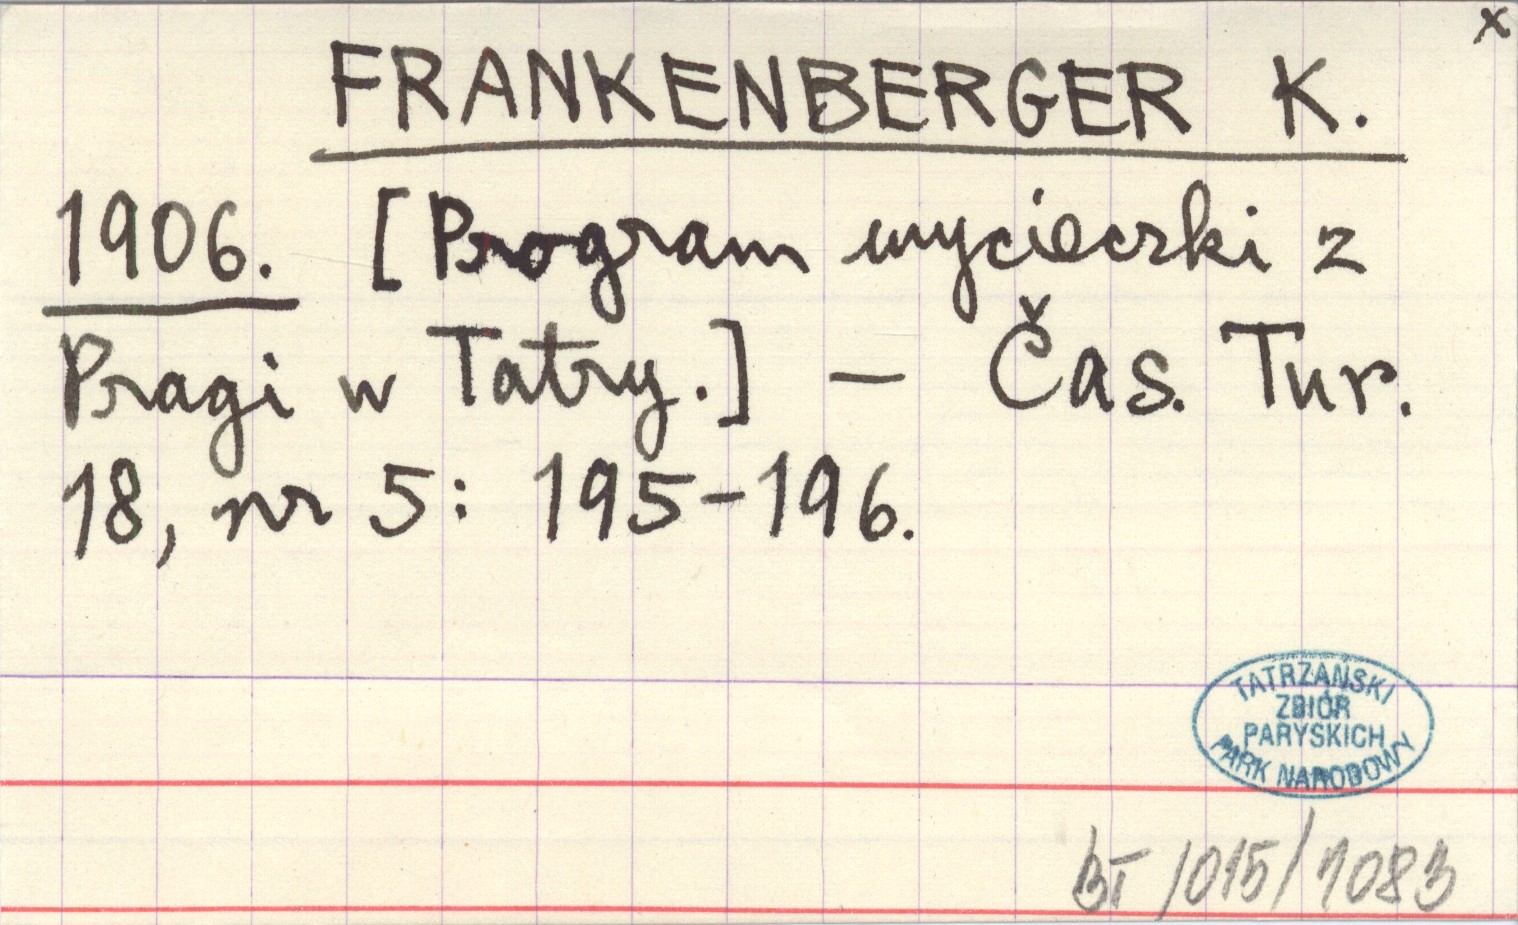 x
FRANKENBERGER K.
1906. [Program wycieczki z
Pragi w Tatry.] — Čas. Tur.
18, nr 5: 195-196.
TATRZAŃSKI
ZBIÓR
PARYSKICH
PARK NARODOWY
BT /015/1083